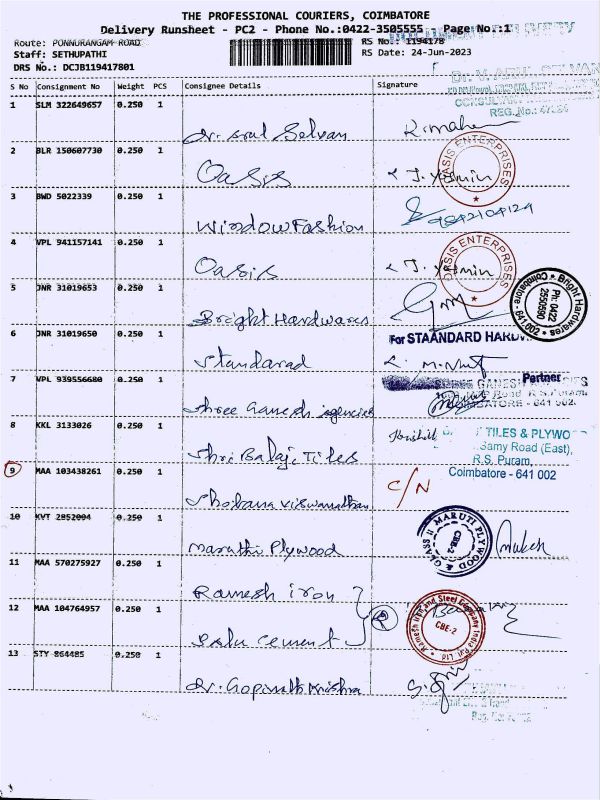 THE PROFESSIONAL COURIERS, COIMBATORE
Delivery Runsheet - PC2 - Phone No.:0422-3505555 Page No.:1
Route: PONNURANGAM ROAD RS No.: 1194178
Staff: SETHUPATHI RS Date: 24-Jun-2023
DRS No.: DCJB119417801
S No Consignment No Weight PCS Consignee Details Signature
CONSULTANT
REG. No.: 47184
1 SLM 322649657 0.250 1
Dr. Arul Selvan K. mahe
2 BLR 150607730 0.250 1
Oasis J. Yasmin OASIS ENTERPRISES
3 BWD 5022339 0.250 1
Window Fashion 9842104124
4 VPL 941157141 0.250 1
Oasis J. Yasmin OASIS ENTERPRISES
5 JNR 31019653 0.250 1
Bright Hardwares Bright Hardwares Ph: 0422 2550590 Coimbatore - 641 002
6 JNR 31019650 0.250 1 For STAANDARD HARDW
Standarad
7 VPL 939556680 0.250 1 Partner
Shree Ganesh Agencies SHREE GANESH AGENCIES
COIMBATORE - 641 002
8 KKL 3133026 0.250 1 TILES & PLYWO
Samy Road (East),
Shri Balaji Tiles R.S. Puram,
9 MAA 103438261 0.250 1 Coimbatore - 641 002
Shobana Viswanathan C/N
10 KVT 2852004 0.250 1
Maruthi Plywood MARUTI PLYWOOD & GLASS II CBE-2 Mukesh
11 MAA 570275927 0.250 1
Ramesh iron
12 MAA 104764957 0.250 1 Ramesh Iron and Steel Company India Pvt. Ltd. CBE-2
Dalu cement R
13 STY 864485 0.250 1
Dr. Gopinath Krishna